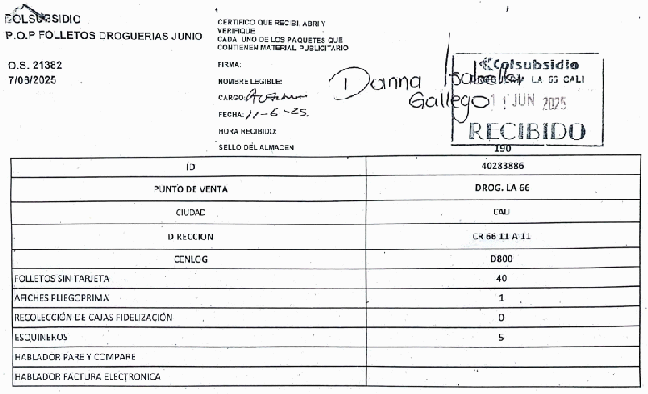 COLSUBSIDIO
P.O.P FOLLETOS DROGUERIAS JUNIO
O.S. 21382
7/03/2025
CERTIFICO QUE RECIBI, ABRI Y
VERIFIQUE
CADA UNO DE LOS PAQUETES QUE
CONTIENEN MATERIAL PUBLICITARIO
FIRMA:
NOMBRE LEGIBLE: Danna Isabella Gallego
CARGO:
FECHA: 11-6-25.
HORA RECIBIDO:
SELLO DEL ALMACEN
Colsubsidio
LA 66 CALI
JUN 2025
RECIBIDO
190
ID 40283886
PUNTO DE VENTA DROG. LA 66
CIUDAD CALI
DIRECCION CR 66 11 A 11
CENLOG D800
FOLLETOS SIN TARJETA 40
AFICHES PLIEGO PRIMA 1
RECOLECCIÓN DE CAJAS FIDELIZACIÓN 0
ESQUINEROS 5
HABLADOR PARE Y COMPARE
HABLADOR FACTURA ELECTRONICA